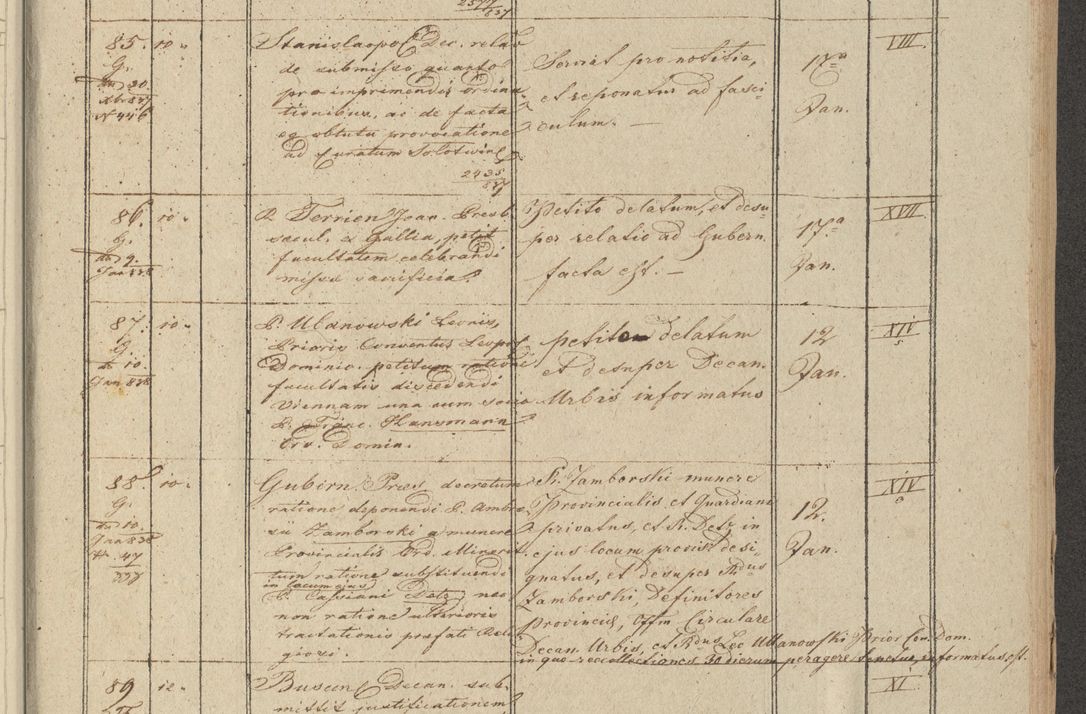 2577
837
85. 10 „
G.
dd 20
Xbr 837
N 446
Stanislaopol Dec. relao
de submisso quarto
pro imprimendis ordina
tionibus, ac de facta
eg obtutu provocatione
ad Curatum Solotwin
2435
837
Serviat pro notitia,
et reponatur ad fasci-
culum. —
17a
Jan.
VIII
86. 10 „
G.
dd 9.
Jan 838
P. Terrien Joan. Presb.
saecul. ex Gallia, petit
facultatem celebrandi
missae sacrificia.
Petito delatum, et desu-
per relatio ad Gubern.
facta est. —
17a
Jan.
XVII
87. 10 „
G.
dd 10.
Jan 838
P. Ulanowski Leonis,
Prioris Conventus Leopol
Dominic. petitum ratione
facultatis discedendi
Viennam una cum socio
P. Franc. Hansmann
Ord. Domin.
petito delatum
et desuper Decan.
Urbis informatus
12
Jan.
XIV
5
88. 10 „
G.
dd 10.
Jan 838
N. 47
838
Gubern. Praes. decretum
ratione deponendi P. Ambro
sii Zamborski a munere
Provincialis Ord. Minorit.
tum ratione substituendi
in locum ejus
P. Cassiani Detz, nec
non ratione ulterioris
tractationis praefati Reli
giosi.
P. Zamborski munere
Provincialis et Guardiani
privatus, et R. Detz in
ejus locum provis. desi-
gnatus, et desuper Rdus
Zamborski, Definitores
Provinciae, Offm Circulare
Decan. Urbis, et Rdus Leo Ullanowski Prior Con. Dom.
in quo recollectiones 30 dierum peragere tenetur, informatus est.
12.
Jan.
XIV
89 12 „
Buscen Decan. sub-
mittit justificationem
XI